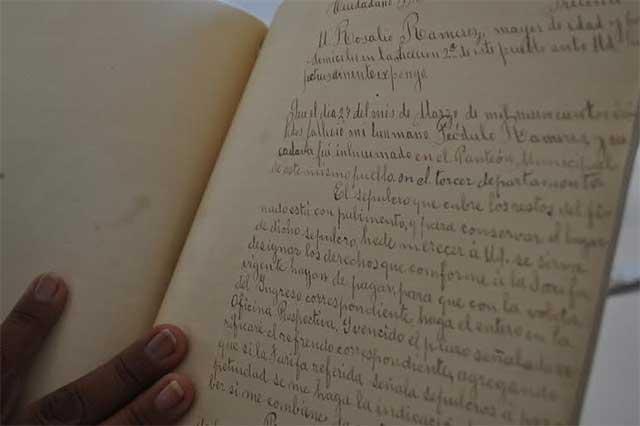 Ciudadano
M. Rosalio Ramirez, mayor de edad y
domicilio en la sección 2ª de este pueblo ante Ud.
expongo
Que el dia 23 del mes de Marzo de mil nuevecientos
dos falleció mi hermano Teódulo Ramirez y su
cadaver fué inhumado en el Panteón Municipal
de este mismo pueblo en el tercer departamento
El sepulcro que cubre los restos del fi-
nado está con pabimento, y para conservar el lugar
de dicho sepulcro, hede merecer á Ud. se sirva
designar los derechos que conforme á la Tarifa
vigente hayan de pagar, para que con la voleta
del Ingreso correspondiente, haga el entero en la
Oficina Respectiva, y vencido el plazo señalado
rificaré el refrendo correspondiente, agregando
que si la Tarifa referida señala sepulcros á per
petuidad se me haga la indicación
ber si me combiene